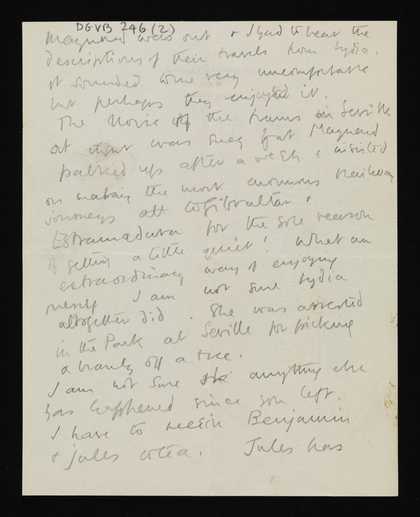 DGVB 746 (2)
Maynard was out & I had to hear the
descriptions of their travels from Lydia.
it sounded to me very uncomfortable
but perhaps they enjoyed it.
The Noise of the trams in Seville
at night was such that Maynard
packed up after a week & insisted
on making the most enormous Railway
journeys all to Gibraltar &
Estramadura for the sole reason
of getting a little quiet! What an
extraordinary way of enjoying
I am not sure Lydia
altogether did. She was arrested
in the Park at Seville for picking
a branch off a tree.
I am not sure anything else
has happened since you left.
I have to Benjamin
& Jules to tea. Jules has